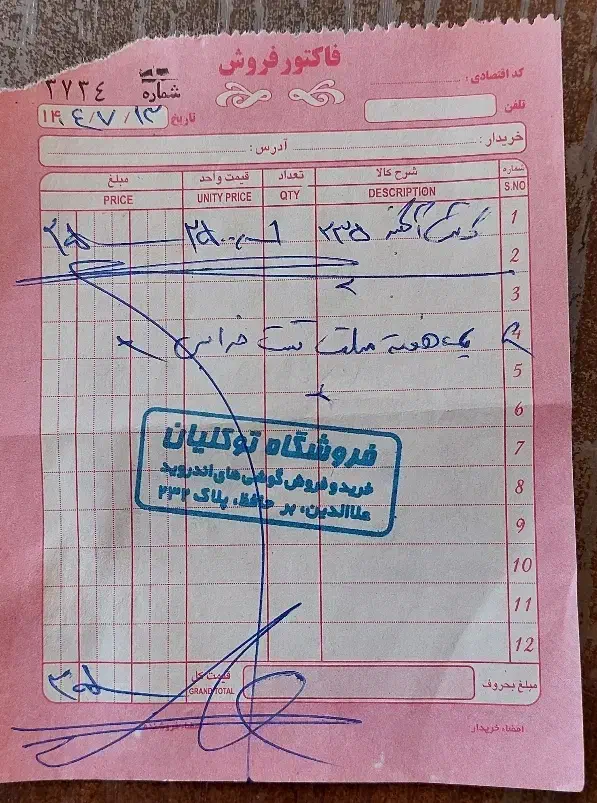 فاکتور فروش
کد اقتصادی:
شماره ٢٧٣٤
تلفن
تاریخ ۱۴۰۴/۷/۱۳
خریدار: آدرس:
شماره شرح کالا تعداد قیمت واحد مبلغ
S.NO DESCRIPTION QTY UNITY PRICE PRICE
1 ۲۳۵ ۱
2
3
4 یک هفته مهلت تست
5
6
7
8
9
10
11
12
فروشگاه توکلیان
خرید و فروش گوشی های اندروید
علاالدین، بر حافظ، پلاک ۲۳۲
مبلغ بحروف قیمت کل
GRAND TOTAL
امضاء خریدار امضاء فروشنده